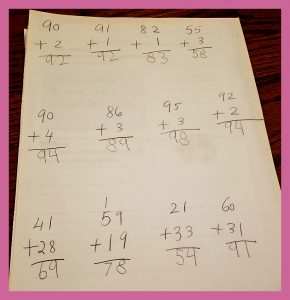 90 91 82 55
+ 2 + 1 + 1 + 3
92 92 83 58
90 86 95 92
+ 4 + 3 + 3 + 2
94 89 98 94
1
41 59 21 60
+28 +19 +33 +31
69 78 54 91